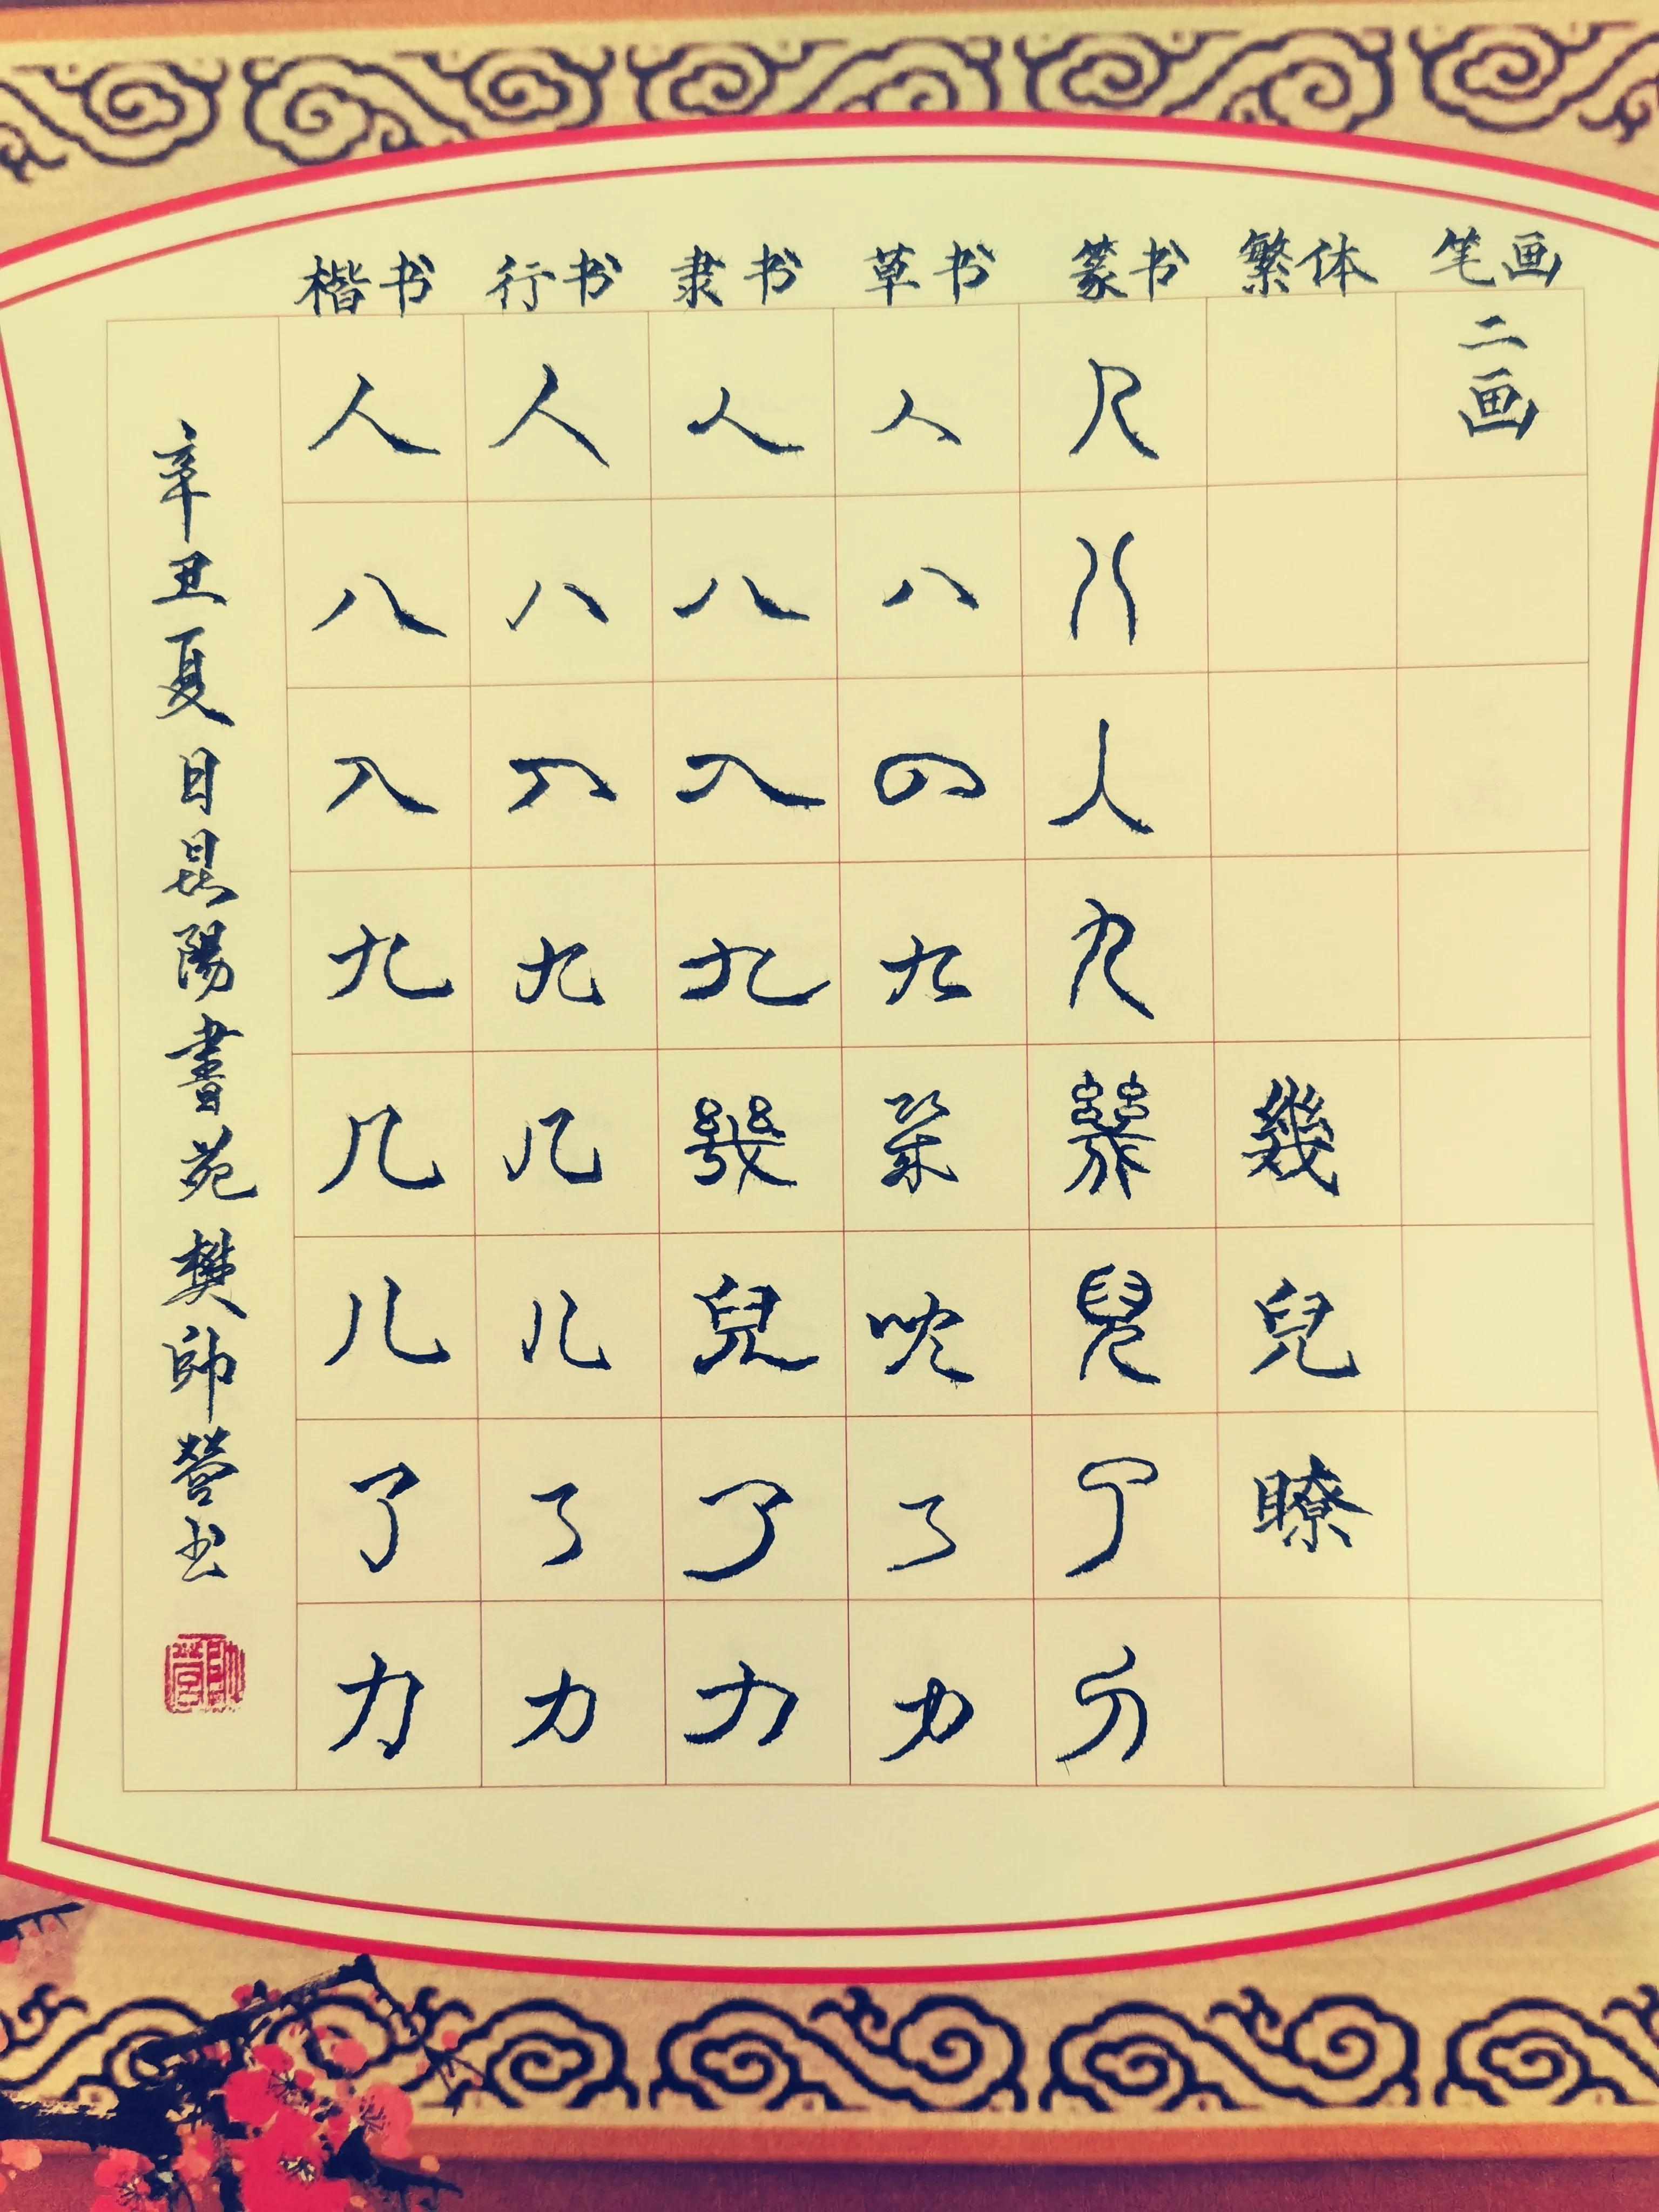 楷书 行书 隶书 草书 篆书 繁体 笔画
人 人 人 人 人 二画
八 八 八 八 八
入 入 入 入 入
九 九 九 九 九
几 几 幾 幾 幾 幾
儿 儿 兒 兒 兒 兒
了 了 了 了 了 瞭
力 力 力 力 力
辛丑夏日昙陽書苑樊帥營书
帥營